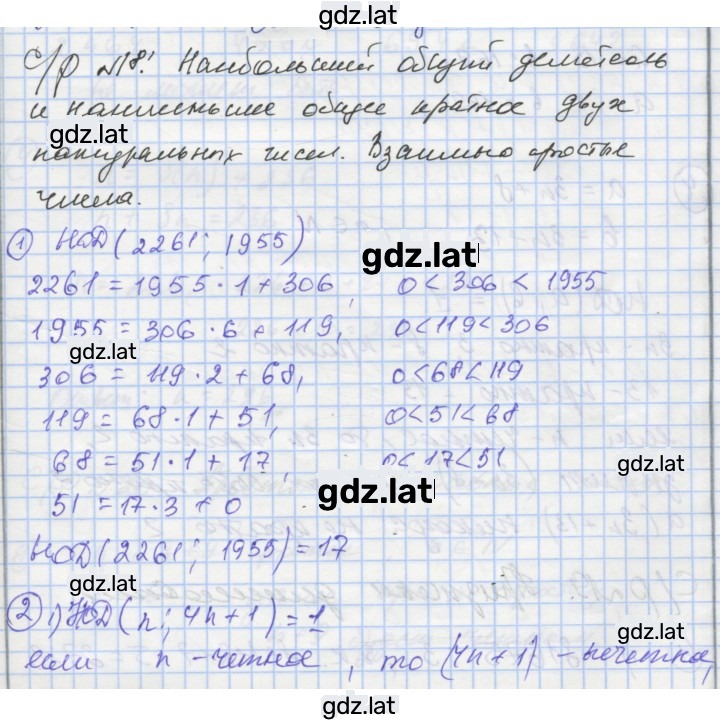 gdz.lat
С/р №18. Наибольший общий делитель
и наименьшее общее кратное двух
gdz.lat
натуральных чисел. Взаимно простые
числа.
① НОД(2261; 1955)
gdz.lat
2261 = 1955 · 1 + 306, 0 < 306 < 1955
1955 = 306 · 6 + 119, 0 < 119 < 306
gdz.lat
306 = 119 · 2 + 68, 0 < 68 < 119
119 = 68 · 1 + 51, 0 < 51 < 68
68 = 51 · 1 + 17, 0 < 17 < 51
gdz.lat
gdz.lat
51 = 17 · 3 + 0
НОД(2261; 1955) = 17
gdz.lat
② 1) НОД(n; 4n+1) = 1
gdz.lat
если n - четное, то (4n+1) - нечетное,
gdz.lat